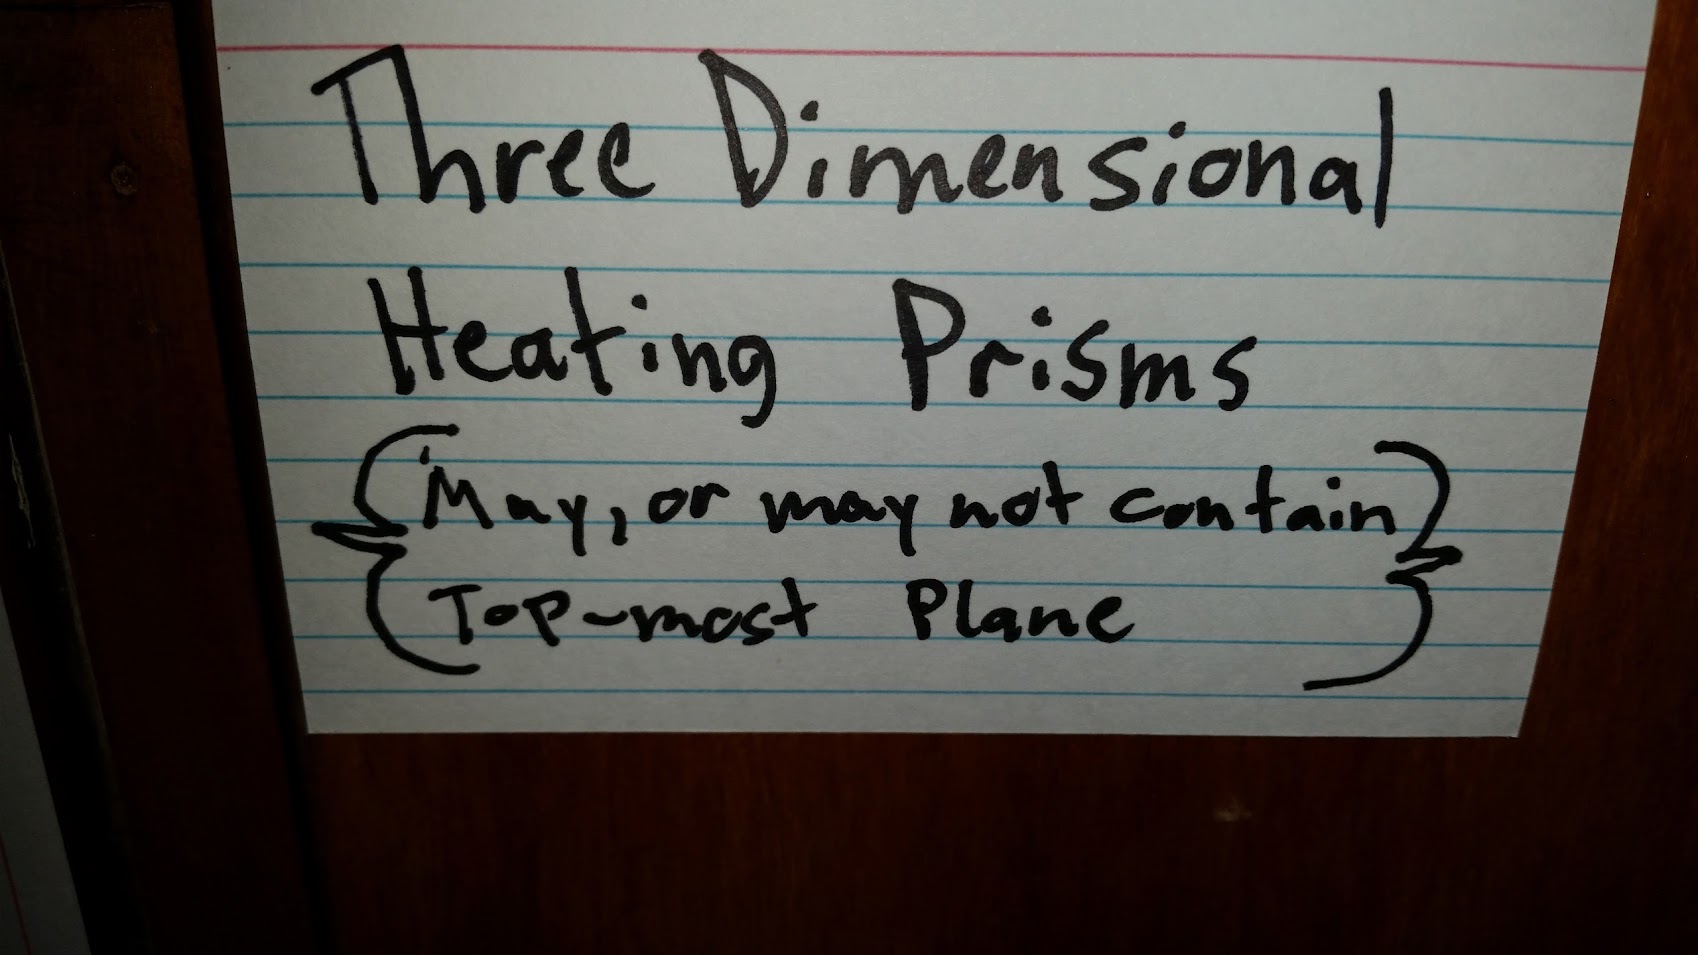 Three Dimensional
Heating Prisms
{May, or may not contain}
Top-most Plane